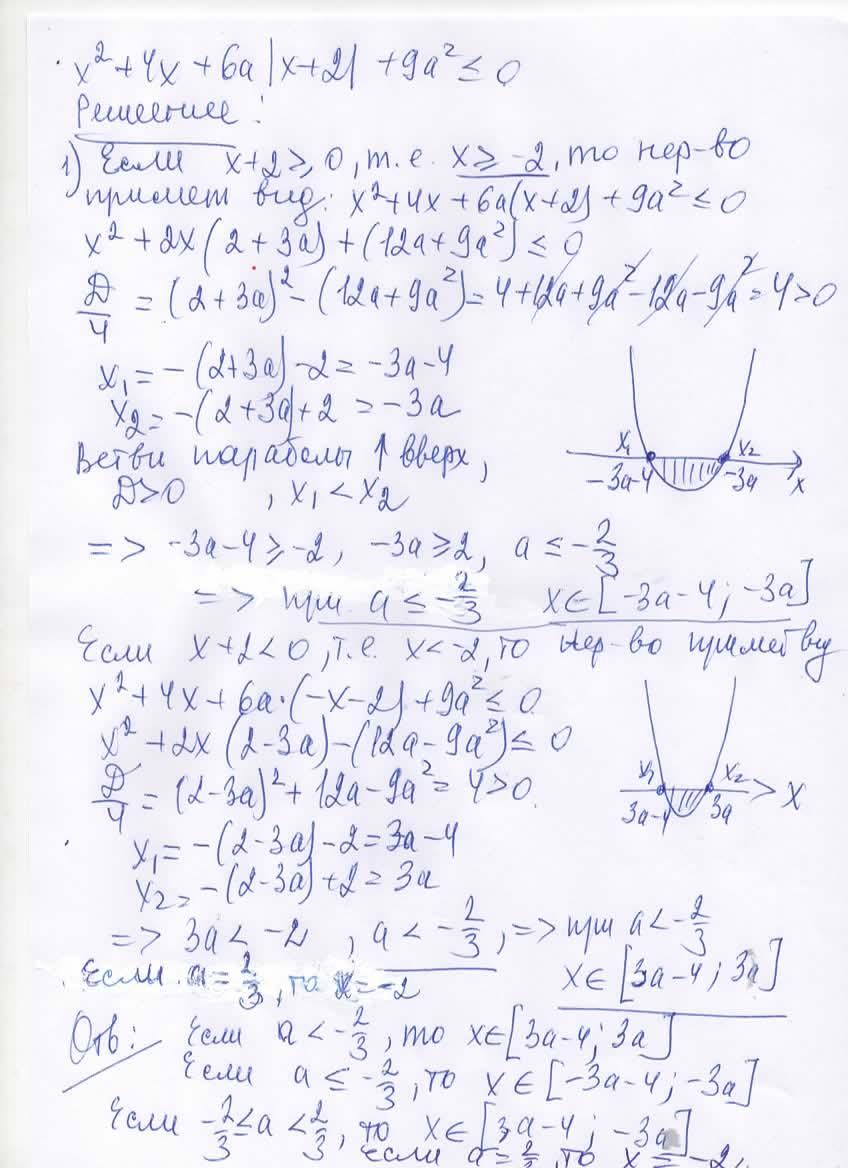 x² + 4x + 6a |x+2| + 9a² ≤ 0
Решение:
1) Если x+2 ≥ 0, т.е. x ≥ -2, то нер-во
примет вид: x² + 4x + 6a(x+2) + 9a² ≤ 0
x² + 2x(2+3a) + (12a+9a²) ≤ 0
Д/4 = (2+3a)² - (12a+9a²) = 4+12a+9a²-12a-9a² = 4>0
x₁ = -(2+3a)-2 = -3a-4
x₂ = -(2+3a)+2 = -3a
Ветви параболы ↑ вверх,
Д>0 , x₁ < x₂
x₁ x₂
-3a-4 -3a x
=> -3a-4 ≥ -2, -3a ≥ 2, a ≤ -2/3
=> при a ≤ -2/3 x∈[-3a-4; -3a]
Если x+2<0, т.е. x<-2, то нер-во примет вид
x² + 4x + 6a·(-x-2) + 9a² ≤ 0
x² + 2x(2-3a) - (12a-9a²) ≤ 0
Д/4 = (2-3a)² + 12a-9a² = 4>0.
x₁ x₂
3a-4 3a x
x₁ = -(2-3a)-2 = 3a-4
x₂ = -(2-3a)+2 = 3a
=> 3a < -2, a < -2/3, => при a < -2/3
x∈[3a-4; 3a]
Если a = 2/3, то x = -2
Отв: Если a < -2/3, то x∈[3a-4; 3a]
Если a ≤ -2/3, то x∈[-3a-4; -3a]
Если -2/3 ≤ a < 2/3, то x∈[3a-4; -3a]
Если a = 2/3, то x = -2.